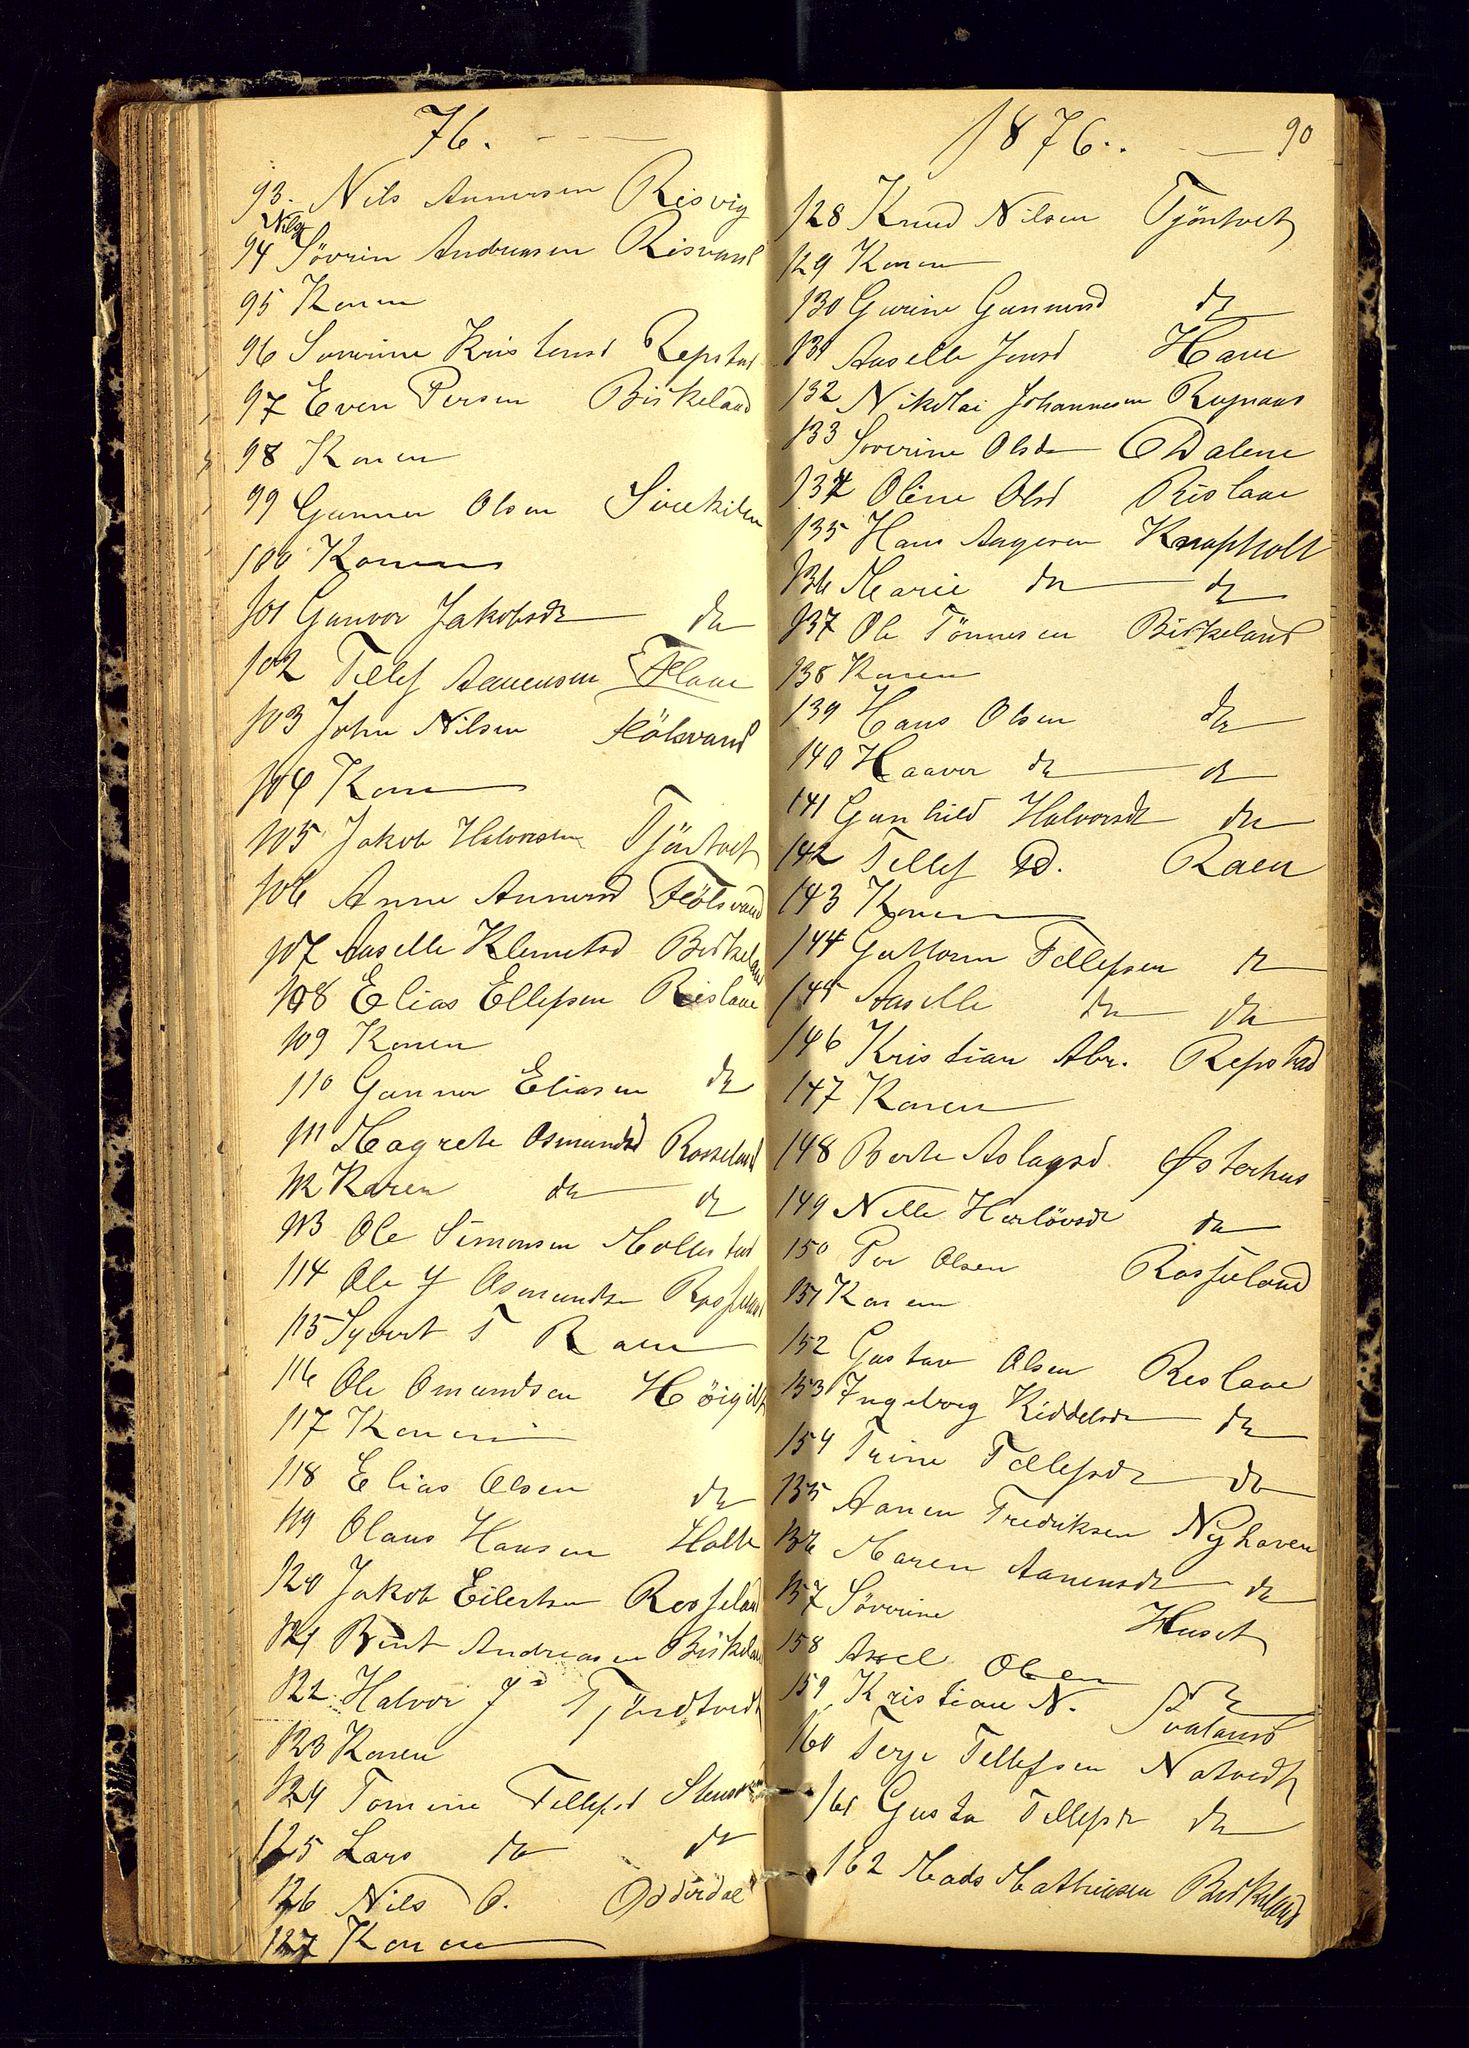 76.
93. Nils Annersen Risvig
Nils
94 Sövrin Andreasen Risvand
95 Konen
96 Soverine Kristensd Repstad
97 Even Persen Birkeland
98 Konen
99 Gunner Olsen
100 Konen
101 Gunvor Jakobsdr do
102 Tellef Aanensen Flaae
103 John Nilsen Kölsvand
104 Kone
105 Jakob Halvorsen Tjöntvet
106 Anne Annersd Kölsvand
107 Aaselle Klemetsd Birkeland
108 Elias Ellefsen Rislaae
109 Konen
110 Gunner Eliasen do
111 Magrete Osmundsd Rosseland
112 Karen do do
113 Ole Simonsen Mollestad
114 Ole J Osmundsen Rosseland
115 Syvert T Raen
116 Ole Omundsen Höigilt
117 Konen
118 Elias Olsen do
119 Olaus Hansen Holte
120 Jakob Eilertsen Rosseland
121 Bent Andreasen Birkeland
122 Halvor J Tjöndtvedt
123 Konen
124 Tomine Tellefsd
125 Lars do do
126 Nils O. Odderdal
127 Konen
1876. 90
128 Knud Nilsen Tjöntvet
129 Konen
130 Gurine Gunnersd do
131 Aaselle Jensd Have
132 Nikolai Johannesen
133 Soverine Olsdr Dalene
134 Oline Olsd Rislaae
135 Hans Aagesen Knapholt
136 Marie do do
137 Ole Tönnesen Birkeland
138 Konen
139 Hans Olsen do
140 Haaver do do
141 Gunhild Halvorsdr do
142 Tellef Raen
143 Konen
144 Guttorm Tellefsen do
145 Aaselle do do
146 Kristian Abr. Repstad
147 Konen
148 Berte Aslagsd Østerhus
149 Nelle Herlövsdr do
150 Per Olsen Rosseland
151 Konen
152 Gustav Olsen Rislaae
153 Ingeborg Kiddelsdr do
154 Trine Tellefsdr do
155 Aanen Fredriksen Nyhaven
156 Maren Aanensdr do
157 Söverine Huset
158 Axel Olsen do
159 Kristian N. Svaland
160 Terje Tellefsen Natvedt
161 Gusta Tellefsdr do
162 Mads Mathiasen Birkeland